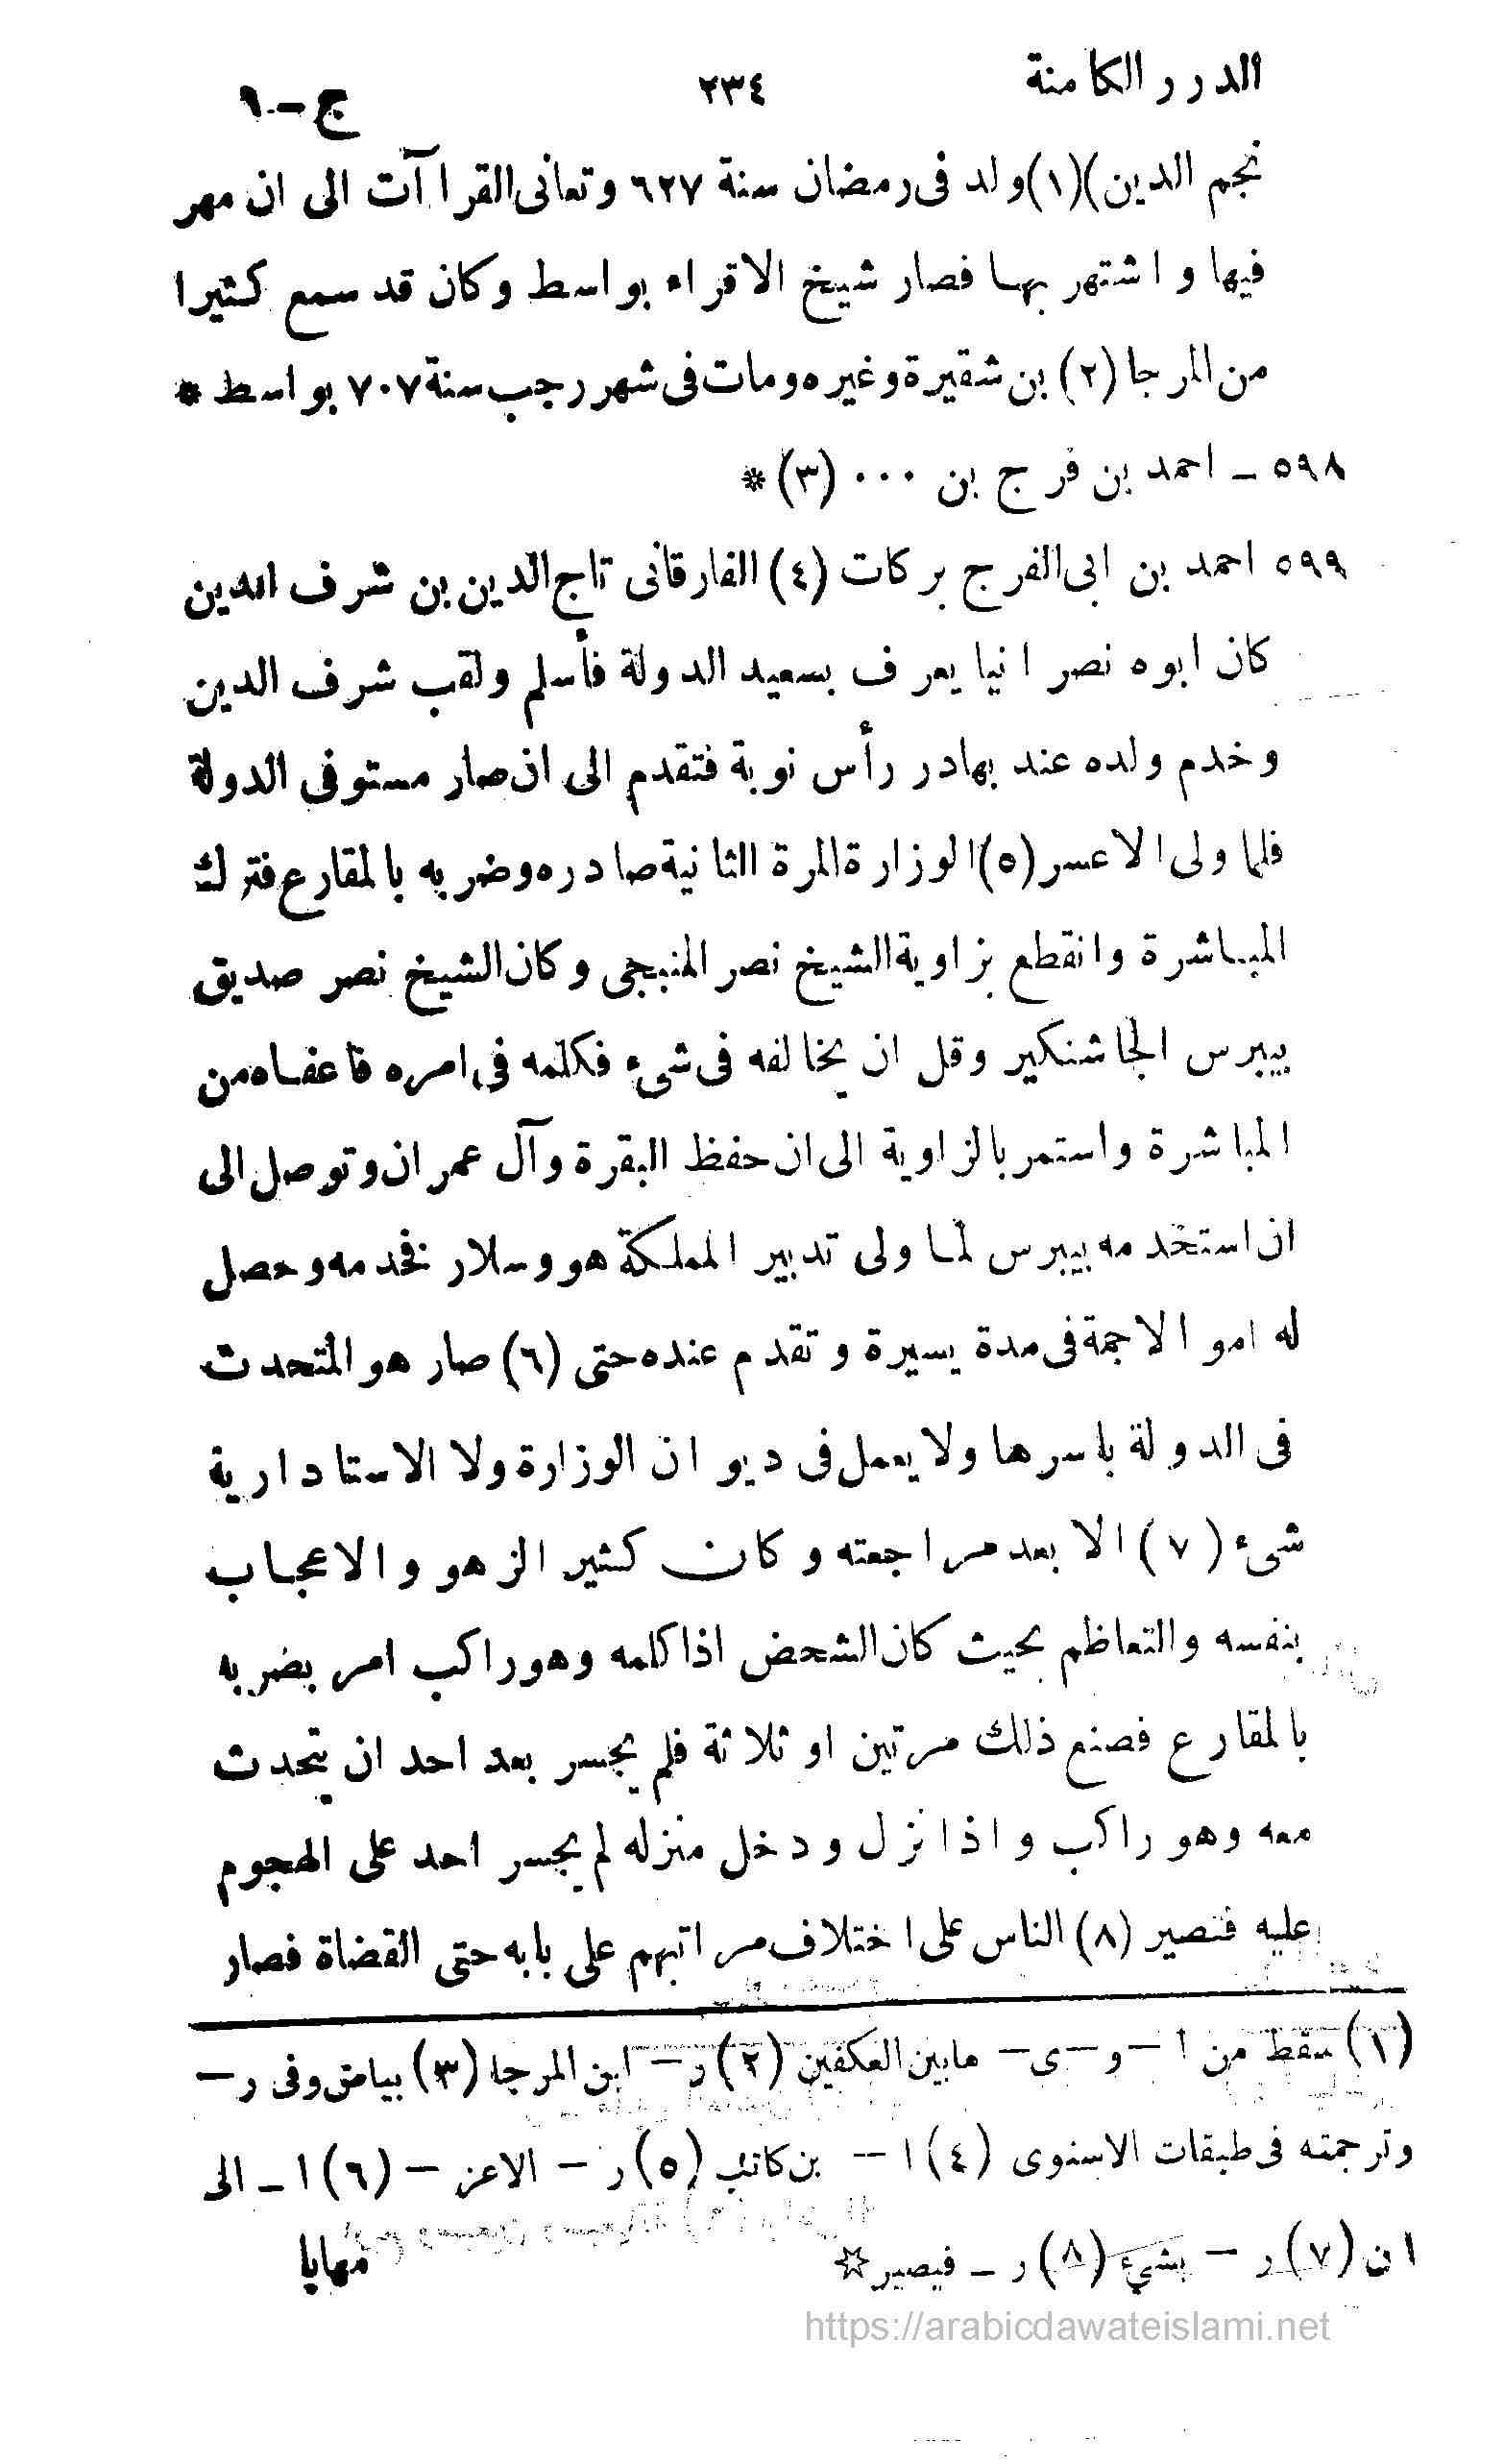 الدرر الكامنة ٢٣٤ ج-١
نجم الدين)(١) ولد فى رمضان سنة ٦٢٧ وتعانى القراآت الى ان مهر
فيها واشتهر بها فصار شيخ الاقراء بواسط وكان قد سمع كثيرا
من المرجا (٢) بن شقيرة وغيره ومات فى شهر رجب سنة ٧٠٧ بواسط *
٥٩٨ - احمد بن فرج بن ٠٠٠ (٣) *
٥٩٩ احمد بن ابى الفرج بركات (٤) الفارقانى تاج الدين بن شرف الدين
كان ابوه نصرانيا يعرف بسعيد الدولة فأسلم ولقب شرف الدين
وخدم ولده عند بهادر رأس نوبة فتقدم الى ان صار مستوفى الدولة
فلما ولى الاعسر (٥) الوزارة المرة الثانية صادره وضربه بالمقارع فترك
المباشرة وانقطع بزاوية الشيخ نصر المنبجى وكان الشيخ نصر صديق
بيبرس الجاشنكير وقل ان يخالفه فى شىء فكلمه فى امره فاعفاه من
المباشرة واستمر بالزاوية الى ان حفظ البقرة وآل عمران وتوصل الى
ان استخدمه بيبرس لما ولى تدبير المملكة هو وسلار فخدمه وحصل
له اموالا جمة فى مدة يسيرة وتقدم عنده حتى (٦) صار هو المتحدث
فى الدولة باسرها ولا يعمل فى ديوان الوزارة ولا الاستادارية
شىء (٧) الا بعد مراجعته وكان كثير الزهو والاعجاب
بنفسه والتعاظم بحيث كان الشخص اذا كلمه وهو راكب امر بضربه
بالمقارع فصنع ذلك مرتين او ثلاثة فلم يجسر بعد احد ان يتحدث
معه وهو راكب واذا نزل ودخل منزله لم يجسر احد على الهجوم
عليه فتصير (٨) الناس على اختلاف مراتبهم على بابه حتى القضاة فصار
(١) سقط من ا - و - ى - مابين العكفين (٢) ر - ابن المرجا (٣) بياض وفى ر -
وترجمته فى طبقات الاسنوى (٤) ا - بن كاتب (٥) ر - الاعز - (٦) ا - الى
ان (٧) ر - بشىء (٨) ر - فيصير ☆ مهابا
https://arabicdawateislami.net